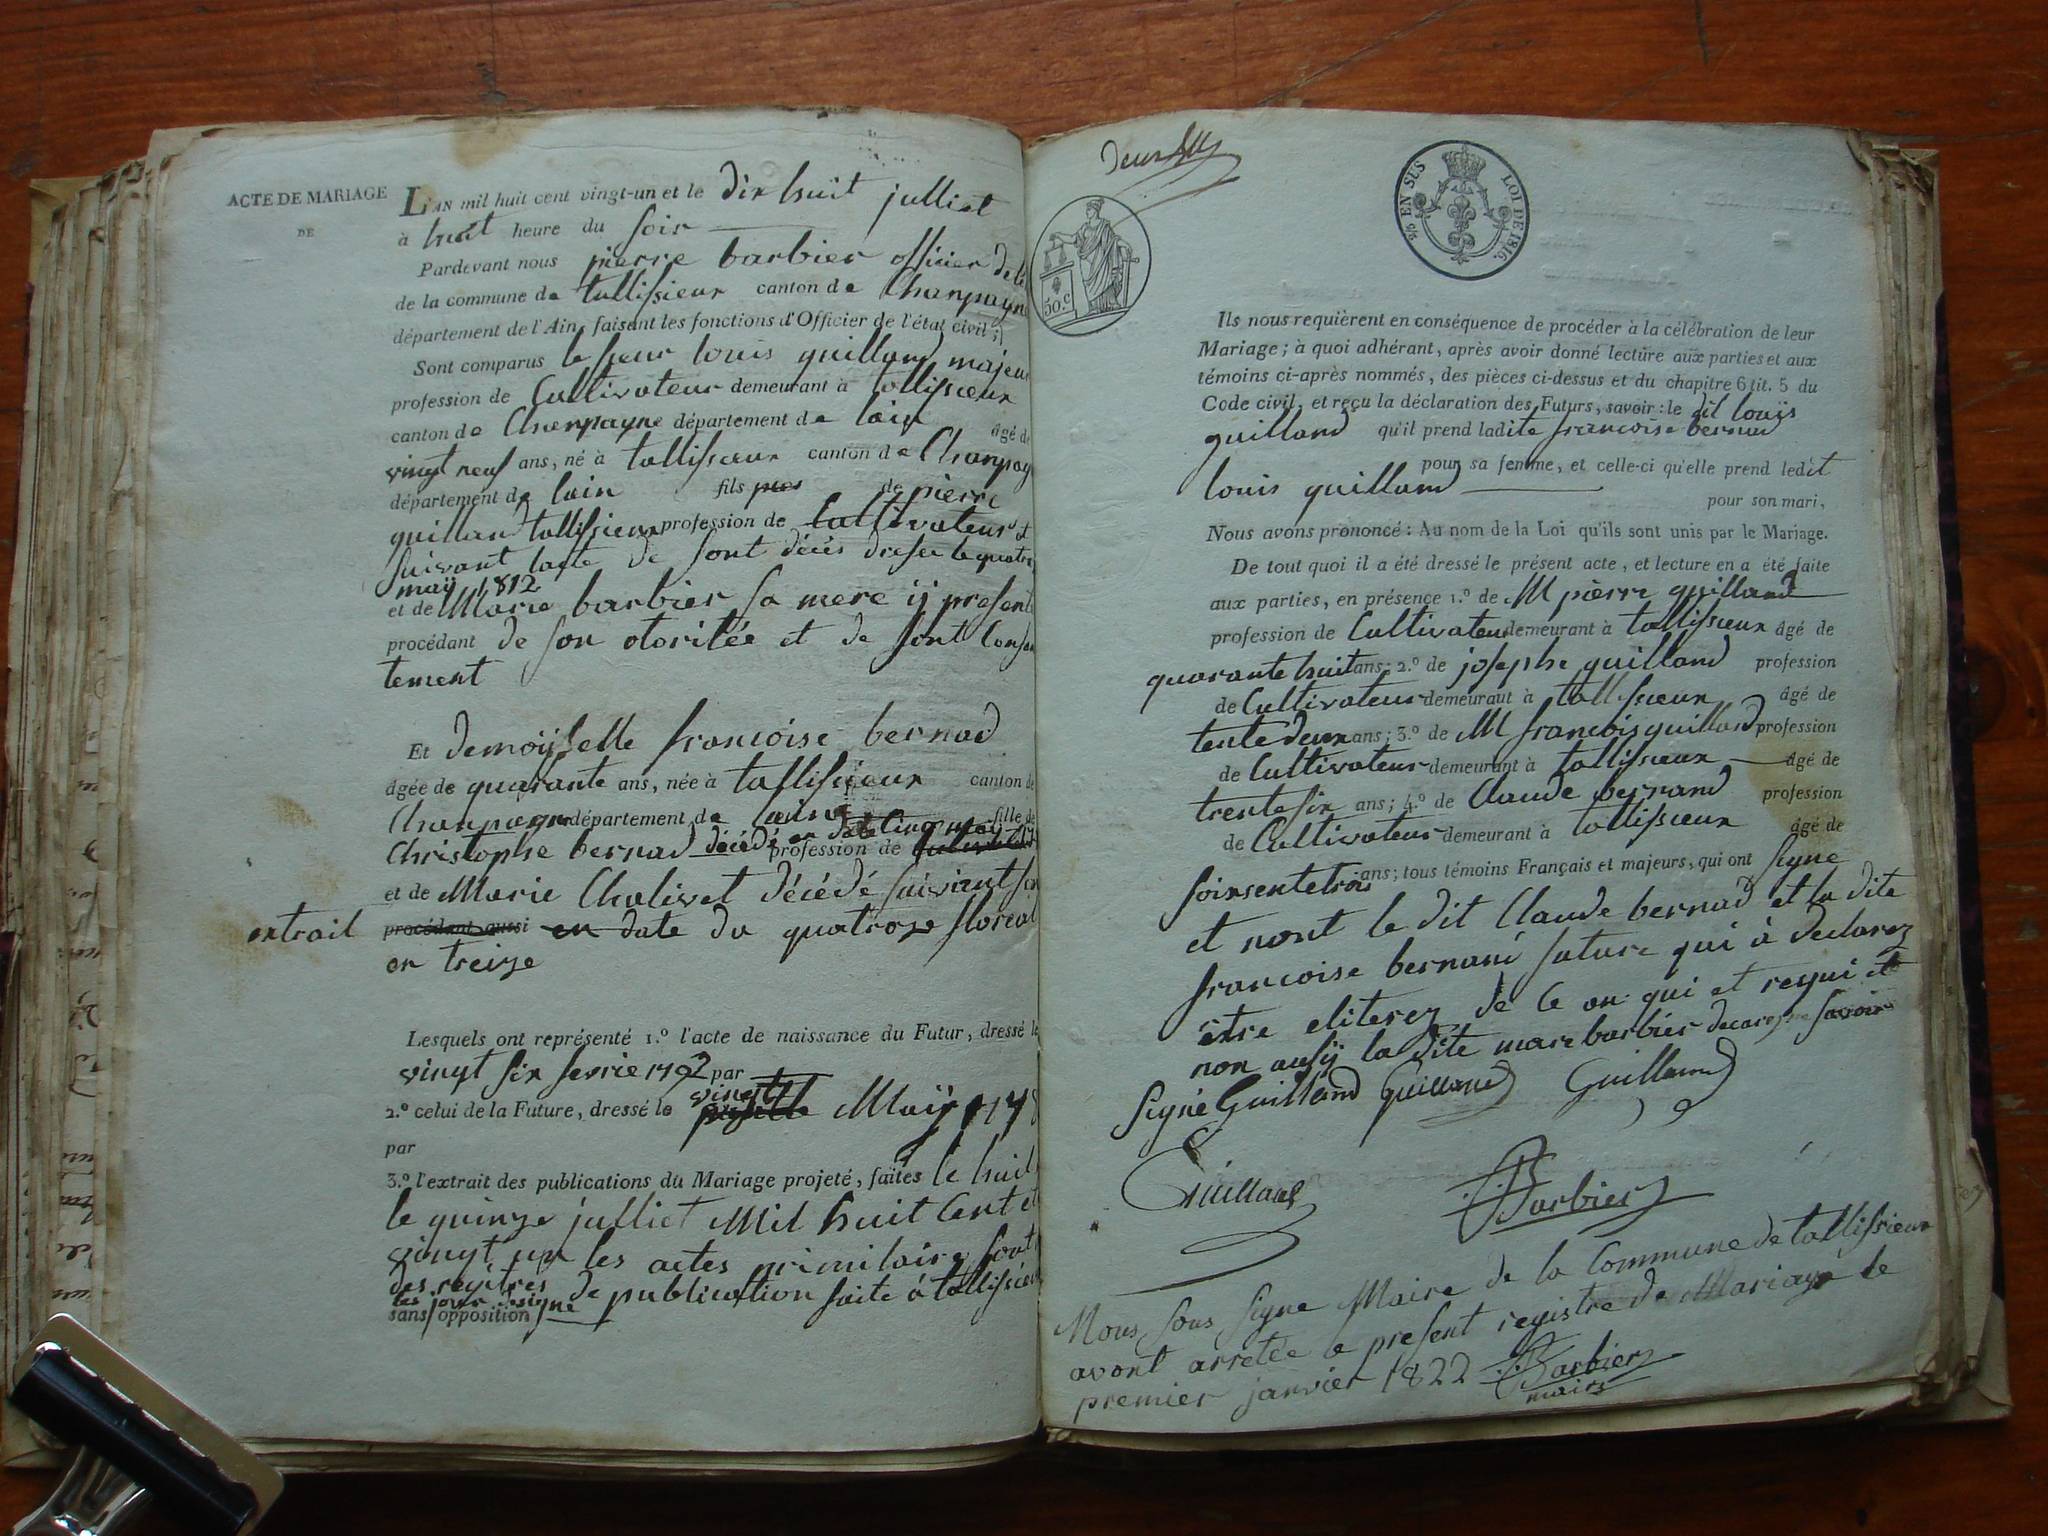 ACTE DE MARIAGE
DE
L'AN mil huit cent vingt-un et le dix huit julliet
à huit heure du soir
Pardevant nous pierre barbier officier de la
de la commune de tallissieux canton de Champagne
département de l'Ain, faisant les fonctions d'Officier de l'état civil;
Sont comparus le sieur louis guilland majeur
profession de Cultivateur demeurant à tallissieux
canton de Champagne département de lain âgé de
vingt neuf ans, né à tallissieux canton de Champag
département de lain fils de pierre
guilland tallissieux profession de Cultivateur et
suivant lacte de sont décés dresee le quatre
may 1812
et de Marie barbier sa mere ij present
procédant de son otoritée et de sont Consen
tement
Et demoiselle francoise bernad
âgée de quarante ans, née à tallissieux canton de
Champagne département de fille de
Christophe bernad décédé en date cinq may
profession de
et de Marie Chalivet décédé suiviant son
extrait procédant aussi en date du quatorze floreal
an treize
Lesquels ont représenté 1.º l'acte de naissance du Futur, dressé le
vingt six fevrie 1792 par
vingt
2.º celui de la Future, dressé le Maij
par
3.º l'extrait des publications du Mariage projeté, faites le huit
le quinze julliet Mil huit Cent et
vingt un les actes primilaire sont
des regitres de publication faite à tallissieux
les jour designe
sans opposition
deux
EN SUS LOI DE 1816.
50.c
Ils nous requièrent en conséquence de procéder à la célébration de leur
Mariage; à quoi adhérant, après avoir donné lecture aux parties et aux
témoins ci-après nommés, des pièces ci-dessus et du chapitre 6 tit. 5 du
Code civil, et reçu la déclaration des Futurs, savoir: le dit louis
guilland qu'il prend ladite francoise bernad
pour sa femme, et celle-ci qu'elle prend ledit
louis guilland
pour son mari,
Nous avons prononcé: Au nom de la Loi qu'ils sont unis par le Mariage.
De tout quoi il a été dressé le présent acte, et lecture en a été faite
aux parties, en présence 1.º de M pierre guilland
profession de Cultivateur demeurant à tallissieux âgé de
quarante huit ans; 2.º de josephe guilland profession
de Cultivateur demeurant à tallissieux âgé de
tente deux ans; 3.º de M francois guilland profession
de Cultivateur demeurant à tallissieux âgé de
trente six ans; 4.º de Claude bernand profession
de Cultivateur demeurant à tallissieux âgé de
soixsente trois ans; tous témoins Français et majeurs, qui ont signe
et nont le dit Claude bernad et la dite
francoise bernand future qui à declarez
être eliterez de ce on qui et requi et
non ausij la dite marie barbier savoir
signé Guilland Guilland Guilland
Guilland
PBarbier
Nous sous signe Maire de la Commune de tallissieux
avont arretée le present registre de Mariage le
premier janvier 1822 PBarbier
maire